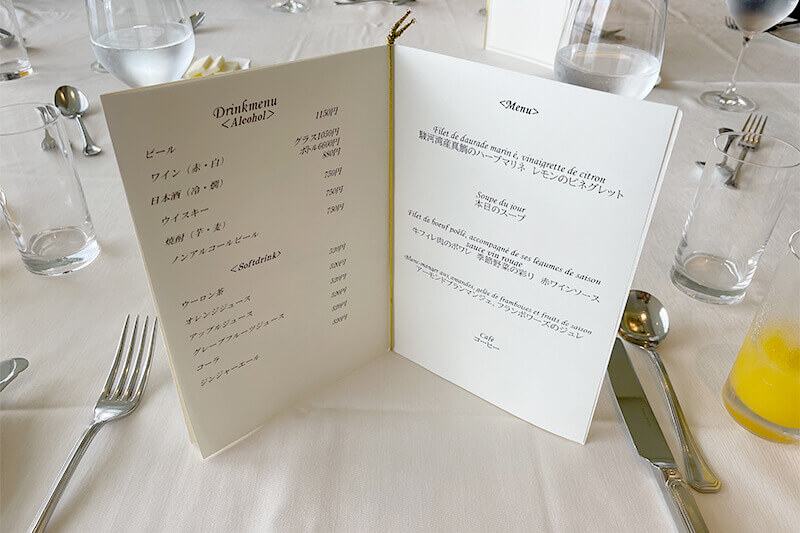 Drinkmenu
<Alcohol>
ビール 1150円
ワイン（赤・白） グラス1050円
ボトル6600円
日本酒（冷・燗） 880円
ウイスキー 750円
焼酎（芋・麦） 750円
ノンアルコールビール 750円
<Softdrink>
ウーロン茶 520円
オレンジジュース 520円
アップルジュース 520円
グレープフルーツジュース 520円
コーラ 520円
ジンジャーエール 520円
<Menu>
Filet de daurade marin é, vinaigrette de citron
駿河湾産真鯛のハーブマリネ レモンのビネグレット
Soupe du jour
本日のスープ
Filet de boeuf poêlé, accompagné de ses légumes de saison
sauce vin rouge
牛フィレ肉のポワレ 季節野菜の彩り 赤ワインソース
Blanc-manger aux amandes, gelée de framboises et fruits de saison
アーモンドブランマンジェ、フランボワーズのジュレ
Café
コーヒー